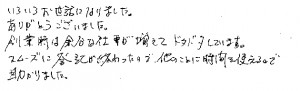 いろいろお世話になりました。
ありがとうございました。
創業時は余分な仕事が増えてドタバタしています。
スムーズに登記が終わったので他のことに時間を使えるので
助かりました。